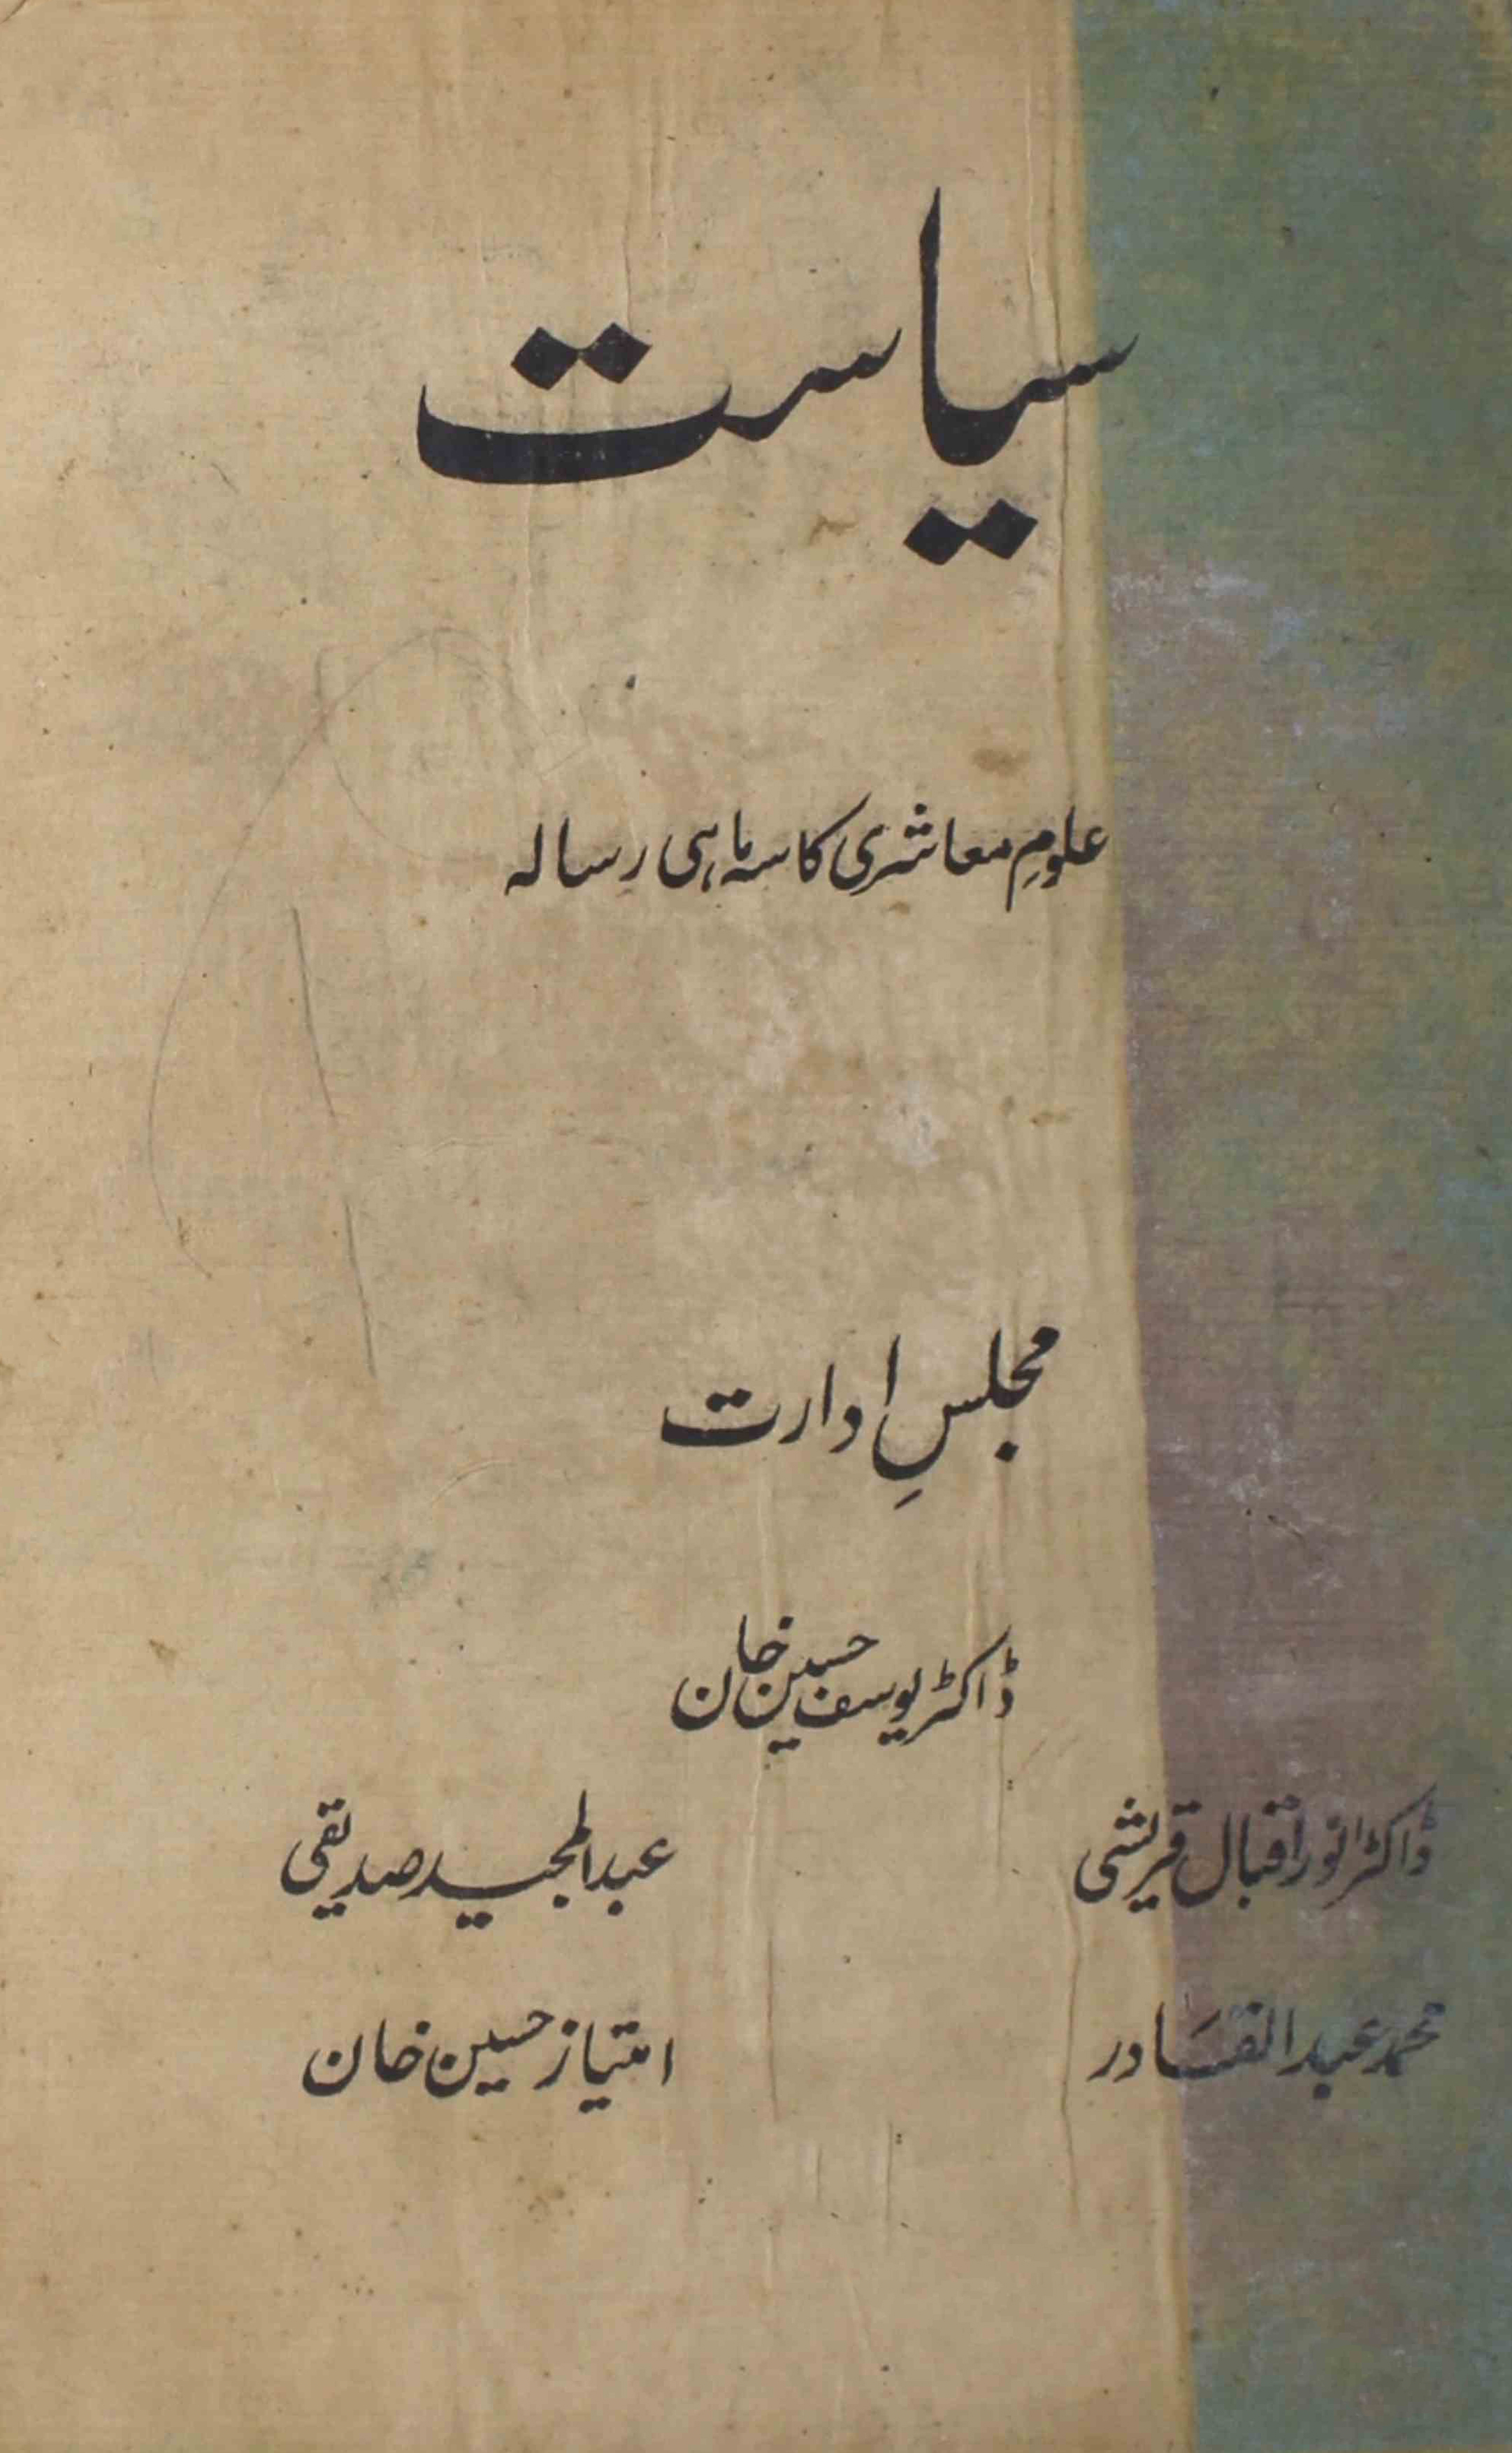 سیاست
علومِ معاشری کا سہ ماہی رسالہ
مجلسِ ادارت
ڈاکٹر یوسف حسین خان
ڈاکٹر انور اقبال قریشی
عبدالمجید صدیقی
محمد عبدالقادر
امتیاز حسین خان